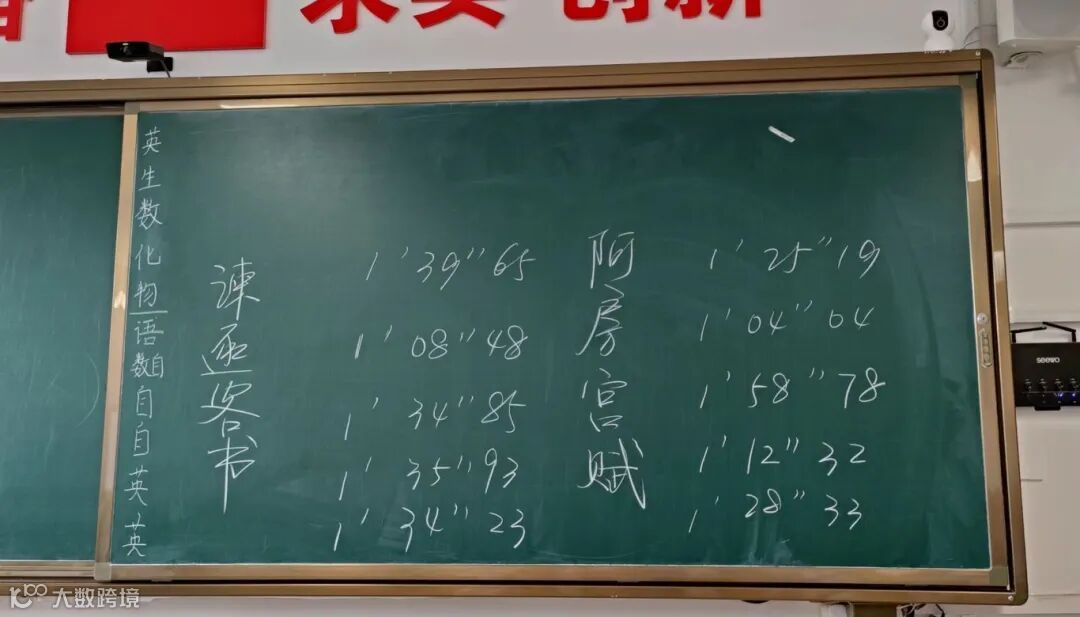 创新
英
生
数
化
物
语
数自
自
自
英
英
谏逐客书
1'39"65
1'08"48
1'34"85
1'35"93
1'34"23
阿房宫赋
1'25"19
1'04"04
1'58"78
1'12"32
1'28"33
seewo
大数跨境